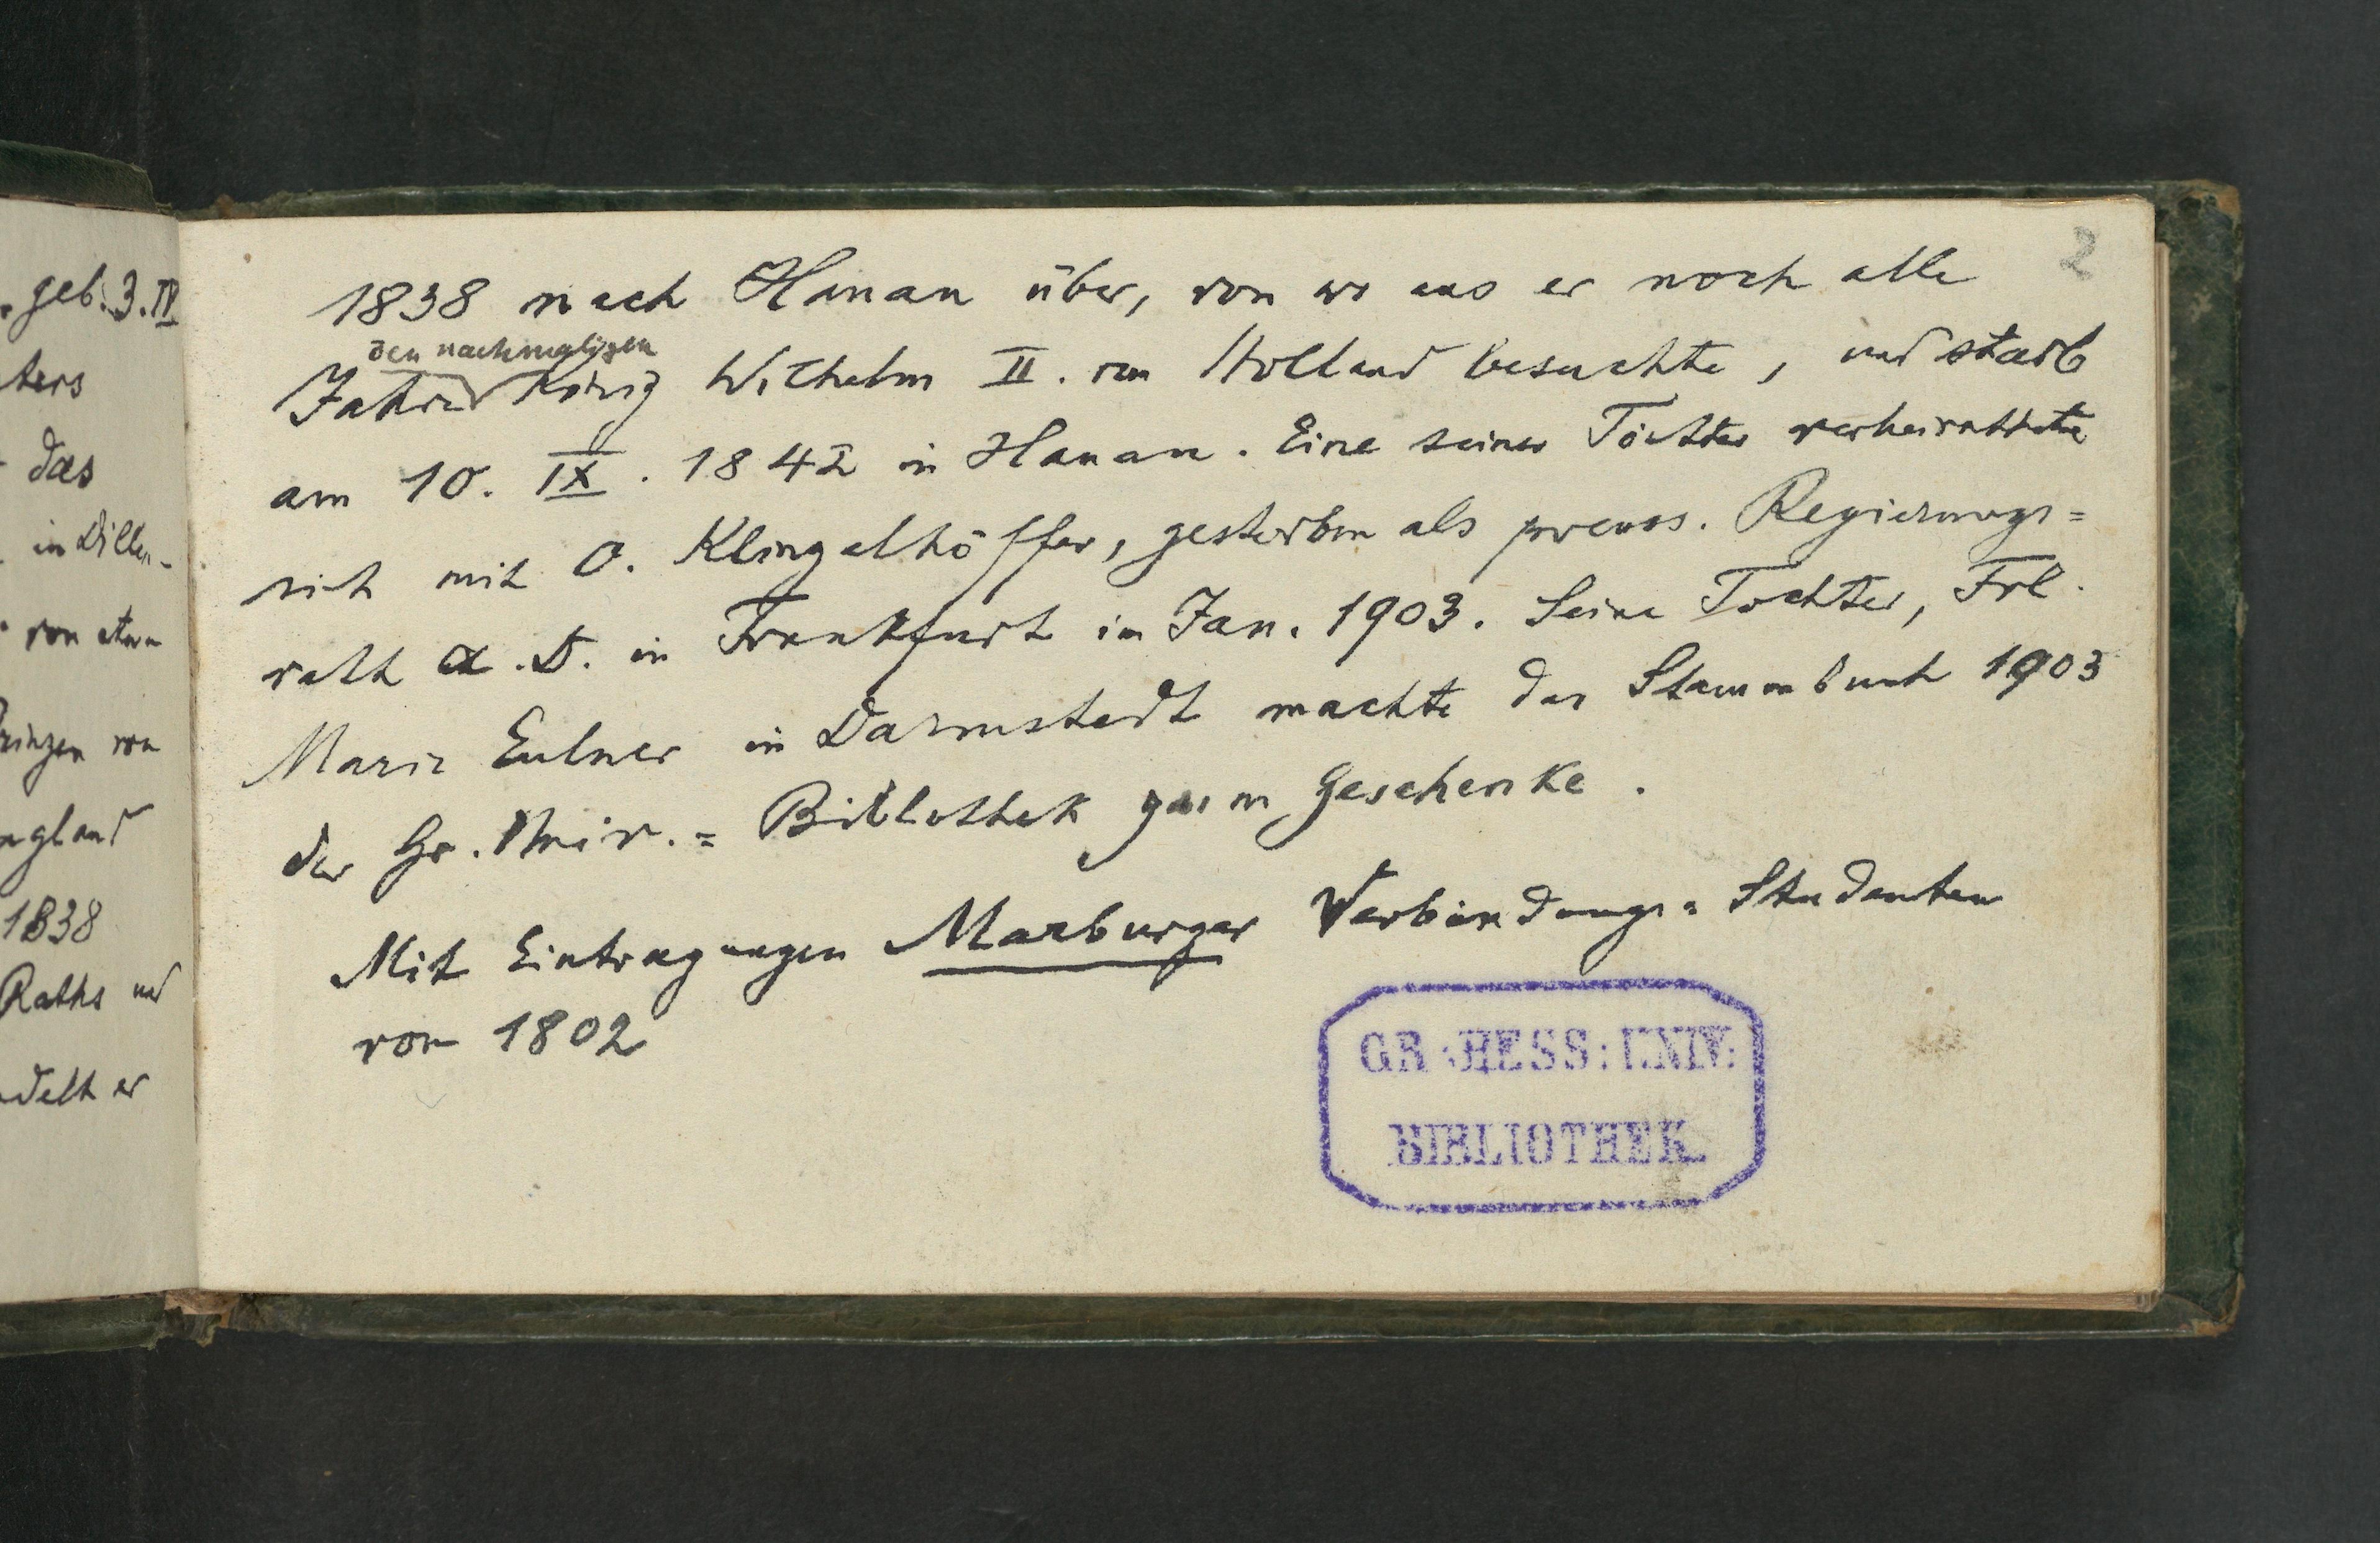 geb. 3. IV
ters
das
in Dillen-
von etwa
Prinzen von
ngland
1838
Raths und
delt er
2
1838 nach Hanau über, von wo aus er noch alle
den nachmaligen
Jahre König Wilhelm II. von Holland besuchte, und starb
am 10. IX. 1842 in Hanau. Eine seiner Töchter verheirathete
sich mit O. Klingelhöffer, gestorben als preuss. Regierungs=
rath a. D. in Frankfurt im Jan. 1903. Seine Tochter, Frl.
Marie Eulner in Darmstadt machte das Stammbuch 1903
der Gr. Univ.= Bibliothek zum Geschenke.
Mit Eintragungen Marburger Verbindungs= Studenten
von 1802
GR: HESS: UNIV:
BIBLIOTHEK